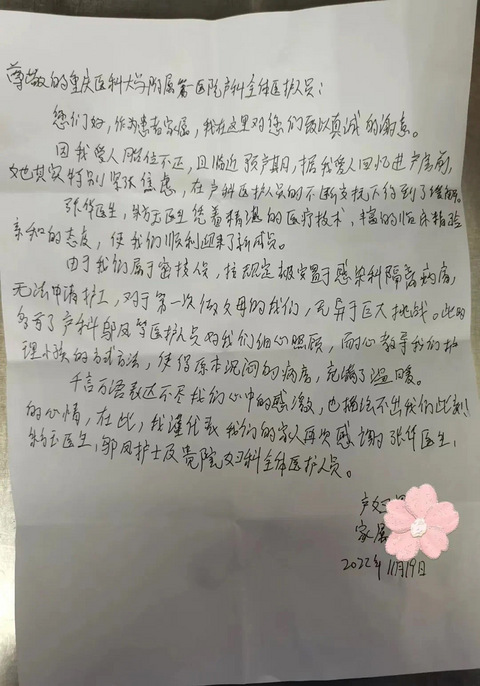 尊敬的重庆医科大学附属第一医院产科全体医护人员：
您们好，作为患者家属，我在这里对您们致以真诚的谢意。
因我爱人胎位不正，且临近预产期，据我爱人回忆进产房前，
她其实特别紧张焦虑，在产科医护人员的不断支持下得到了缓解。
张华医生，医生凭着精湛的医疗技术，丰富的临床经验
亲和的态度，使我们顺利迎来了新成员。
由于我们属于密接人员，按规定被安置于感染科隔离病房，
无法申请护工，对于第一次做父母的我们，无异于巨大挑战。此时
多亏了产科邬凤等医护人员对我们细心照顾，耐心教导我们护
理小孩的方式方法，使得原本沉闷的病房，充满了温暖。
千言万语表达不尽我们心中的感激，也描绘不出我们此刻
的心情，在此，我谨代表我们的家人再次感谢张华医生，
医生，邬凤护士及贵院妇科全体医护人员。
产妇
家属
2022年11月19日